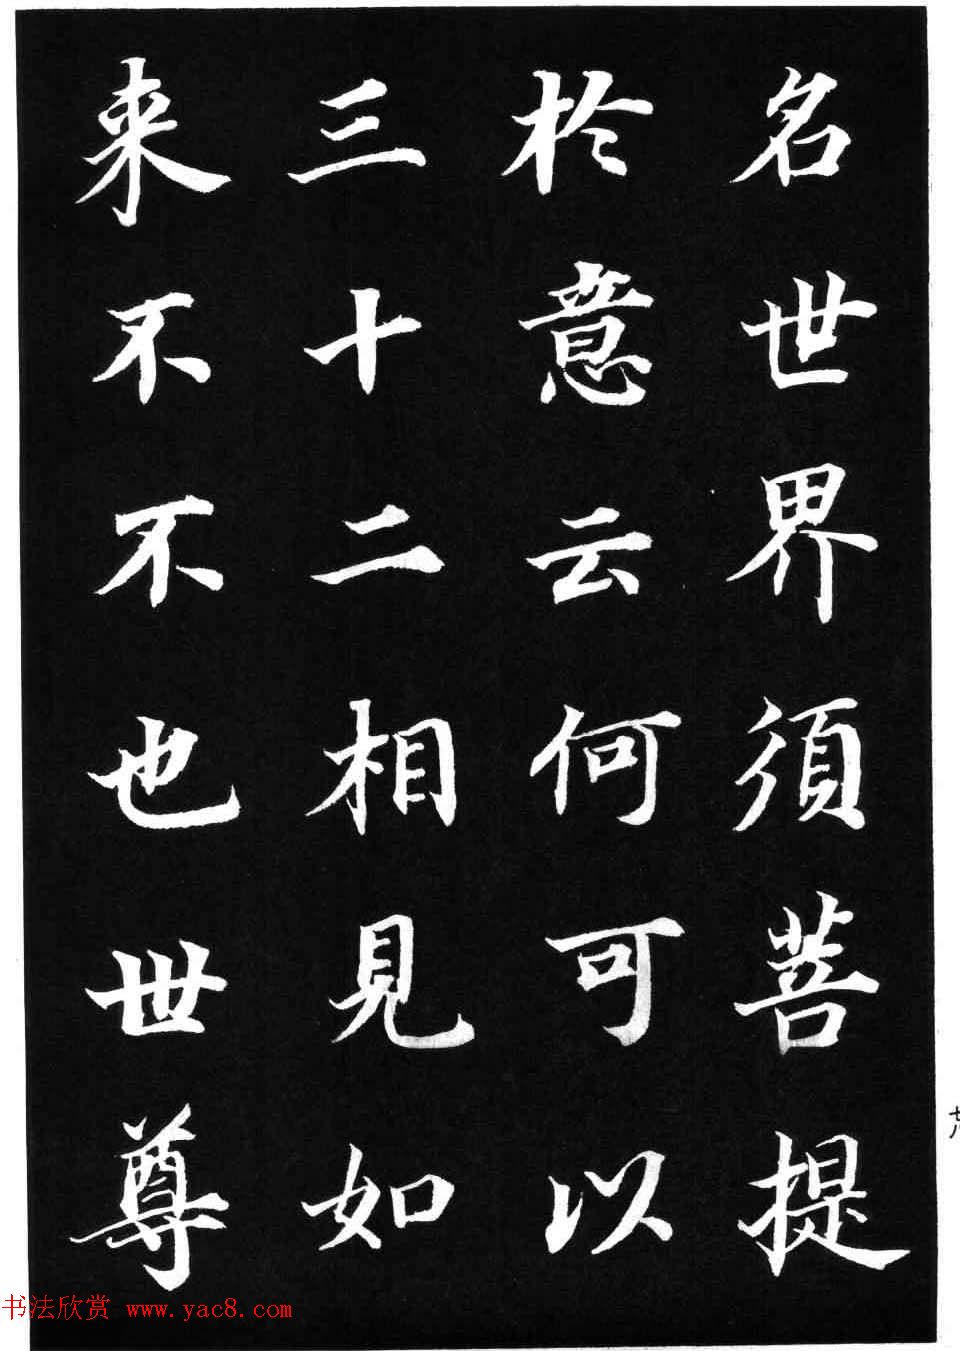 名世界須菩提
於意云何可以
三十二相見如
来不不也世尊
七八
书法欣赏 www.yac8.com